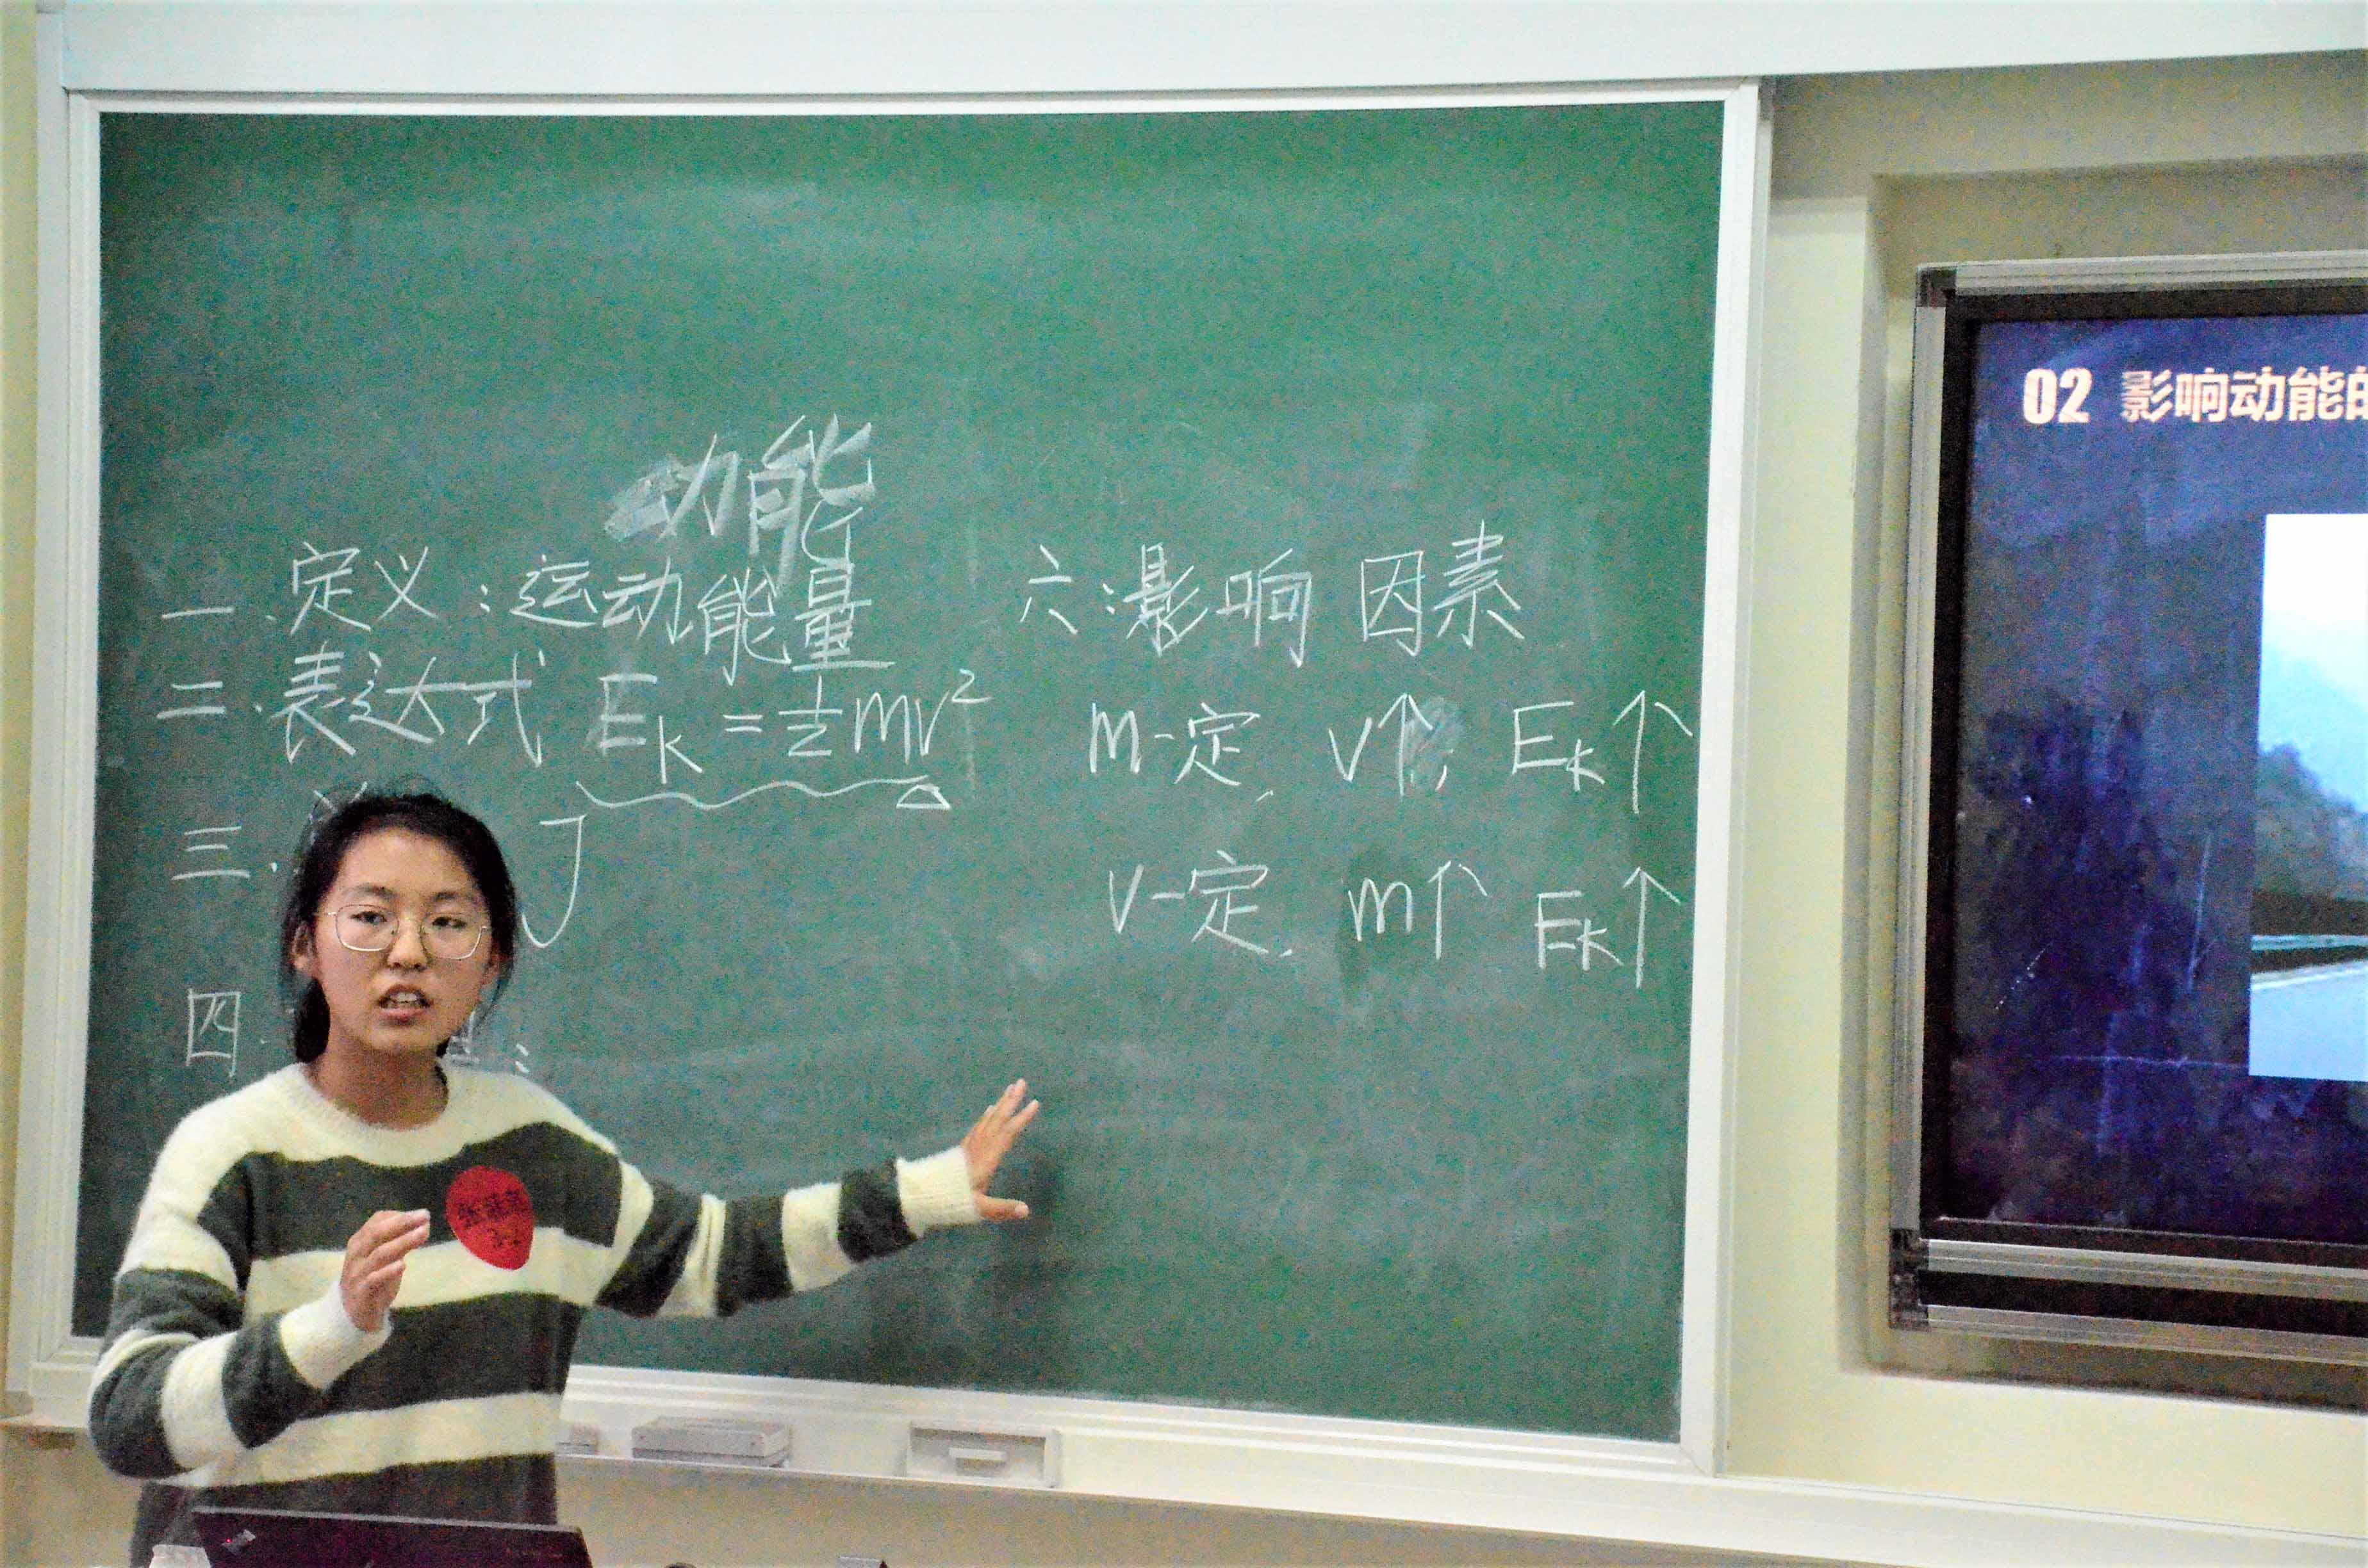 动能
一.定义:运动能量
二.表达式 Ek=½mv²
三. J
四. :
六:影响因素
m一定, v↑, Ek↑
v一定, m↑ Ek↑
02 影响动能的